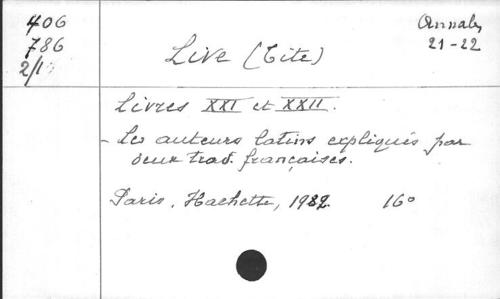 406
786
2/1
Annales
21-22
Live (Tite)
Livres XXI et XXII.
- Les auteurs latins expliqués par
deux trad. françaises.
Paris, Hachette, 1982. 16°